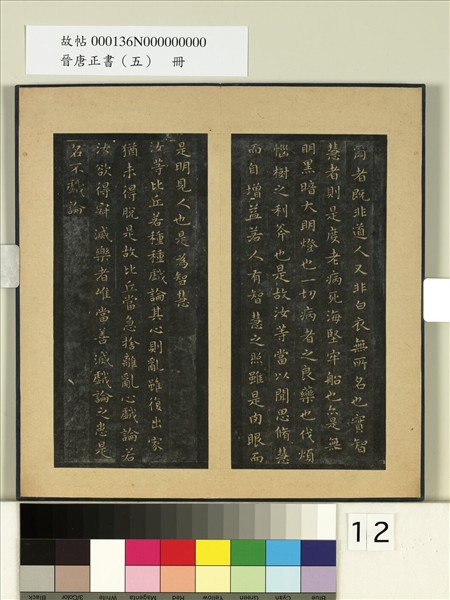 故帖 000136N000000000
晉唐正書（五） 冊
爾者既非道人又非白衣無所名也實智
慧者則是度老病死海堅牢船也亦是無
明黑暗大明燈也一切病者之良藥也伐煩
惱樹之利斧也是故汝等當以聞思脩慧
而自增益若人有智慧之照雖是肉眼而
是明見人也是為智慧
汝等比丘若種種戲論其心則亂雖復出家
猶未得脫是故比丘當急捨離亂心戲論若
汝欲得寂滅樂者唯當善滅戲論之患是
名不戲論
12
Blue Cyan Green Yellow Red Magenta White 3/Color Black